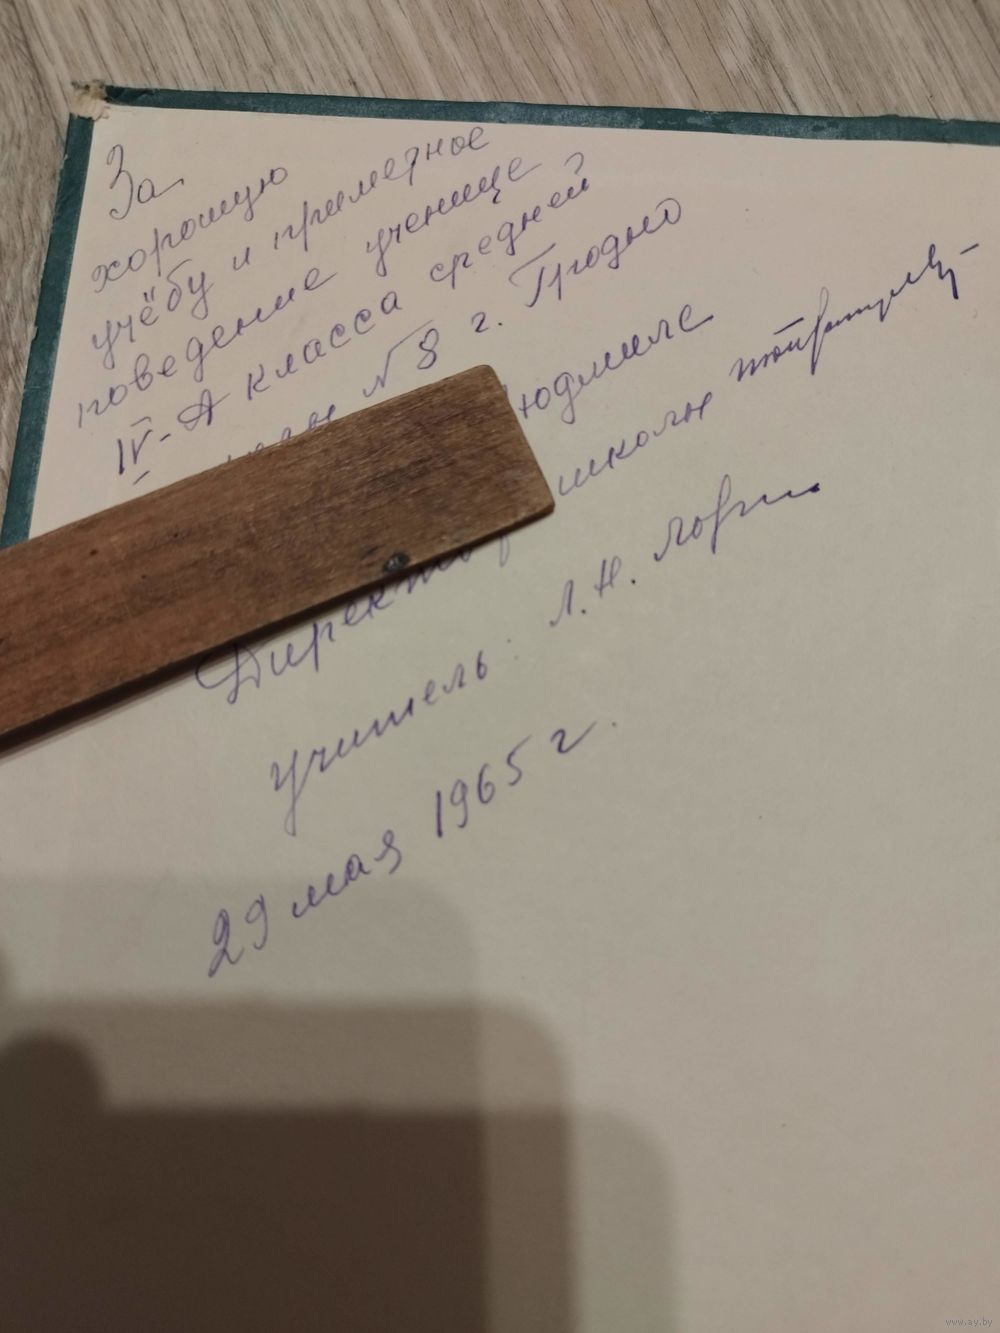 За
хорошую
учёбу и примерное
поведение ученице
IV-А класса средней
№8 г. Гродно
Людмиле
Директор школы
учитель Л.Н.
29 мая 1965 г.
www.ay.by